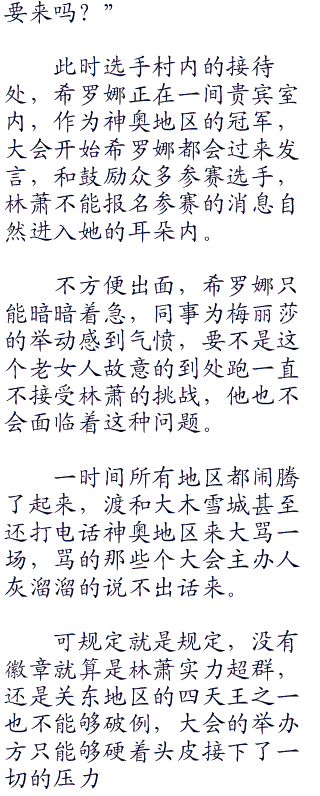 要来吗？”
此时选手村内的接待
处，希罗娜正在一间贵宾室
内，作为神奥地区的冠军，
大会开始希罗娜都会过来发
言，和鼓励众多参赛选手，
林萧不能报名参赛的消息自
然进入她的耳朵内。
不方便出面，希罗娜只
能暗暗着急，同事为梅丽莎
的举动感到气愤，要不是这
个老女人故意的到处跑一直
不接受林萧的挑战，他也不
会面临着这种问题。
一时间所有地区都闹腾
了起来，渡和大木雪城甚至
还打电话神奥地区来大骂一
场，骂的那些个大会主办人
灰溜溜的说不出话来。
可规定就是规定，没有
徽章就算是林萧实力超群，
还是关东地区的四天王之一
也不能够破例，大会的举办
方只能够硬着头皮接下了一
切的压力